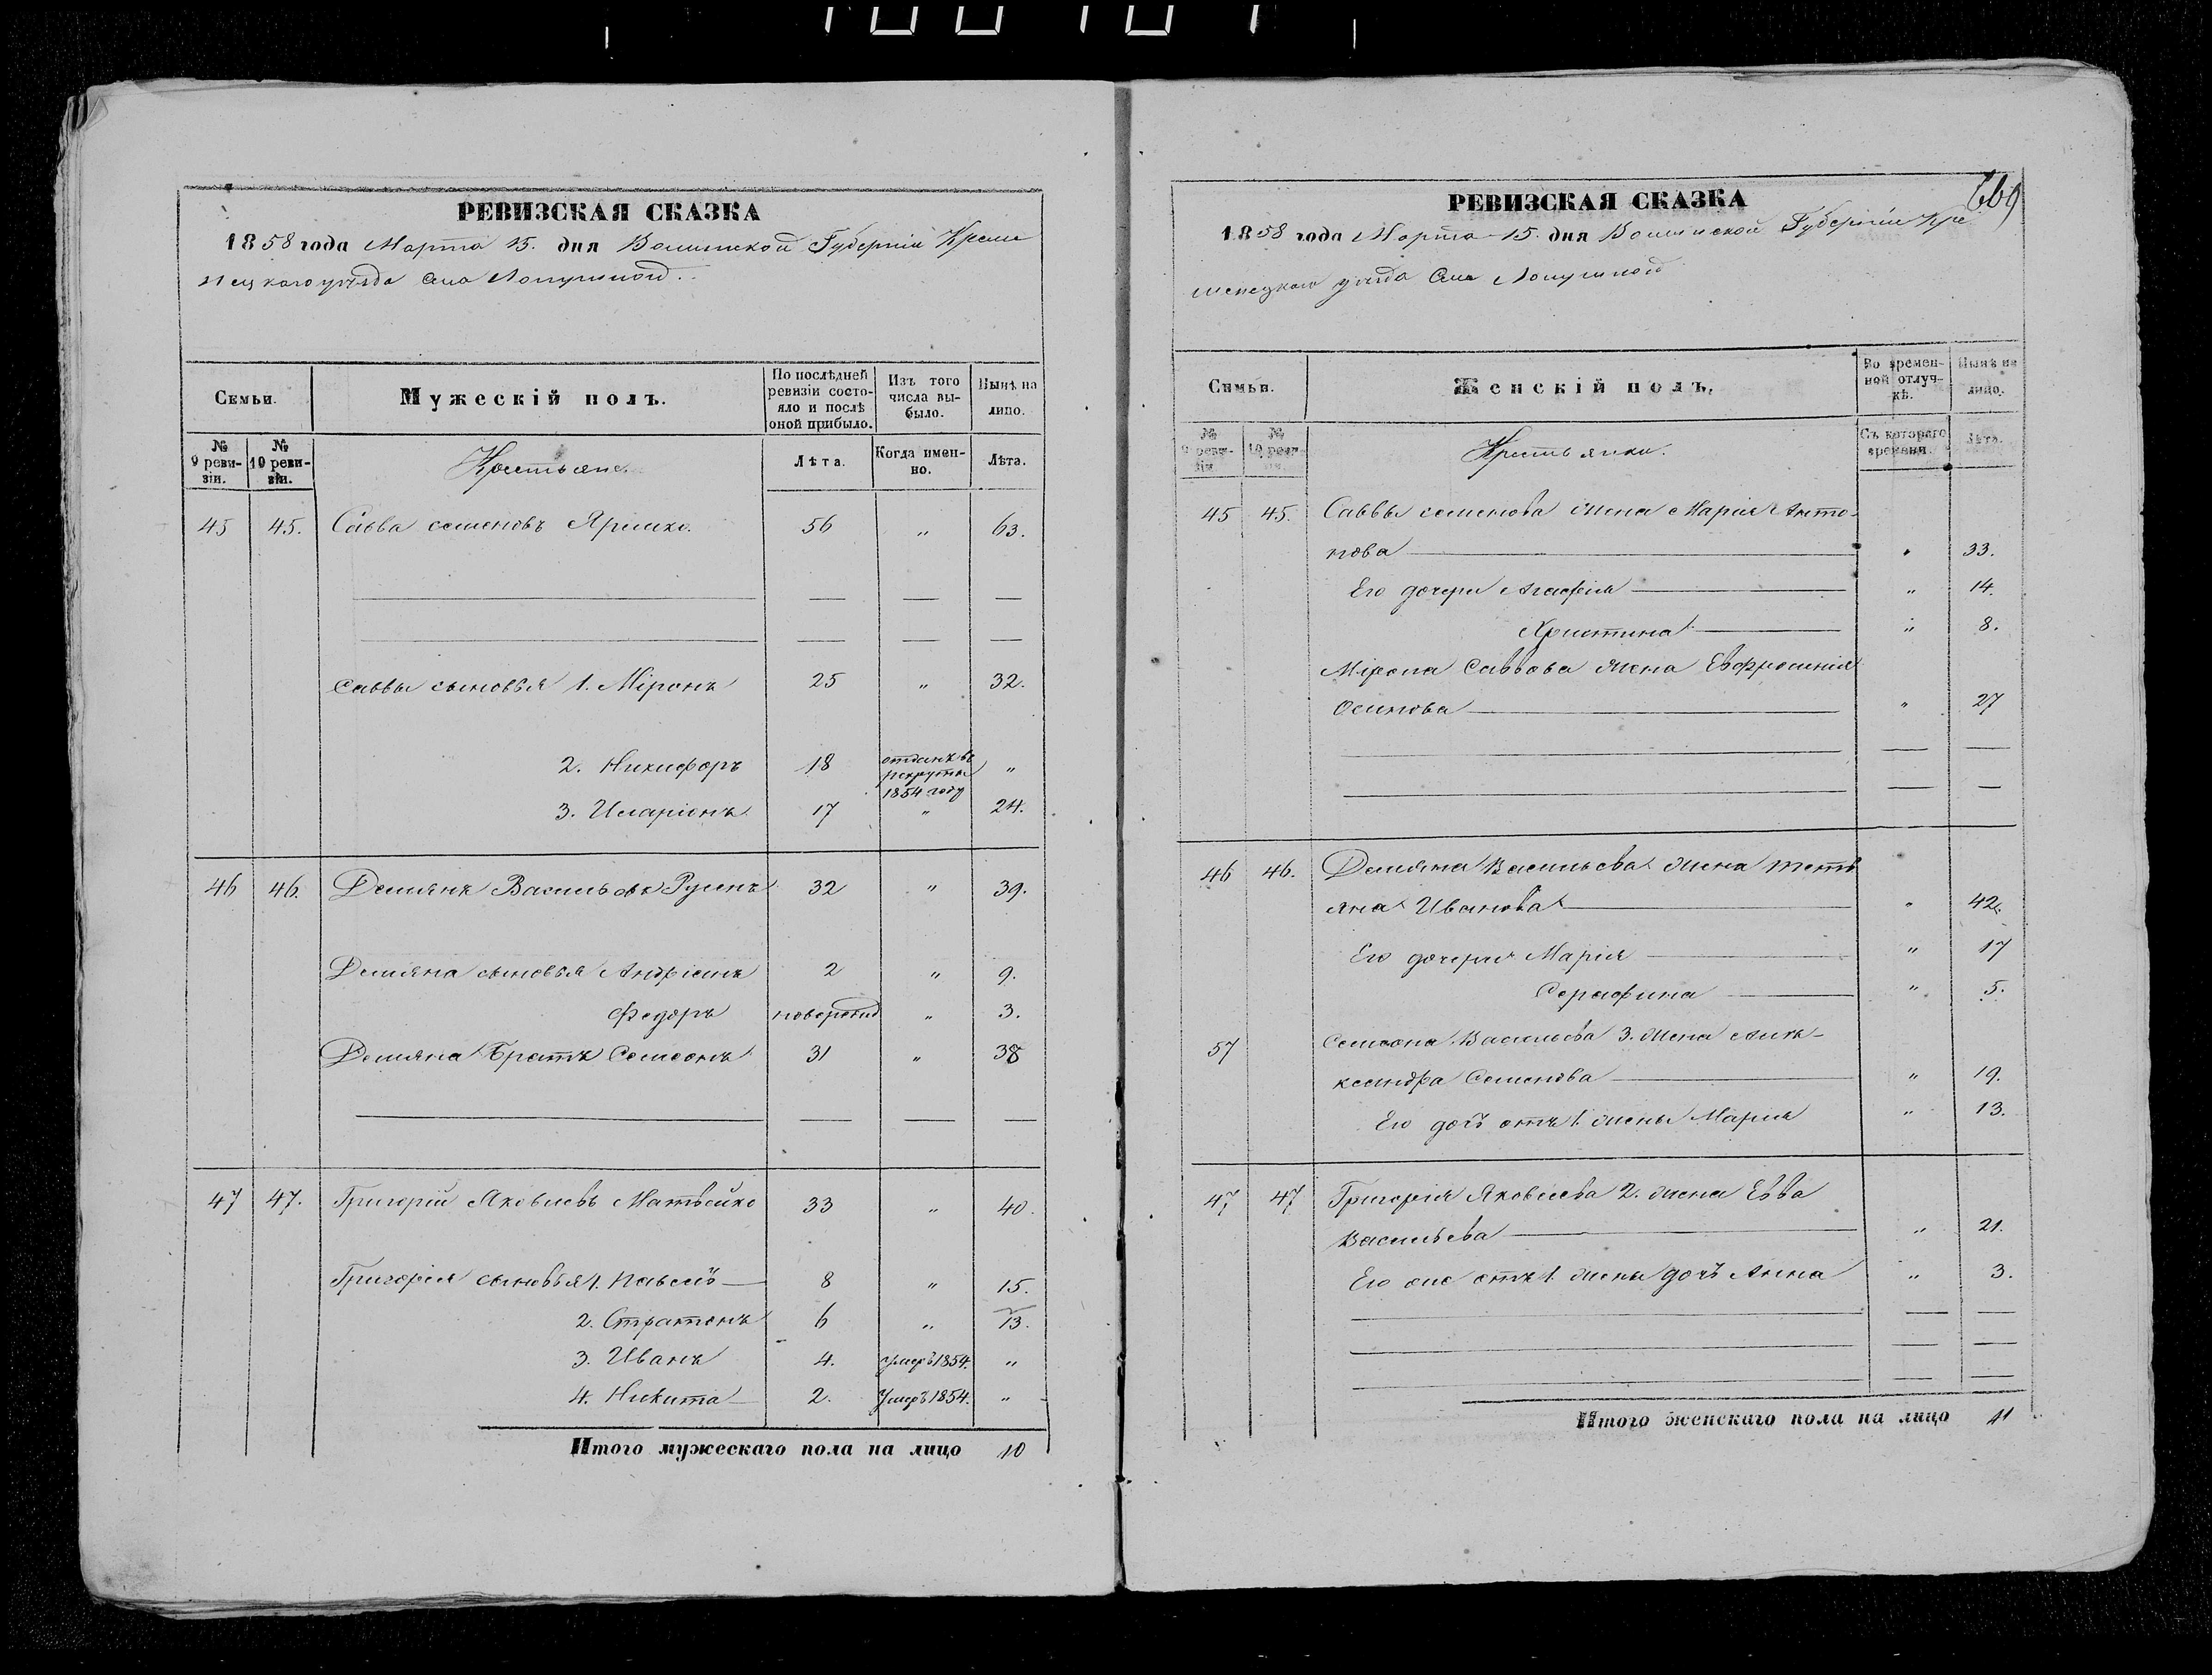 РЕВИЗСКАЯ СКАЗКА
1858 года Марта 15. дня Волынской Губерніи Креме
нецкого уѣзда Села Лопушной.
Семьи.
Мужескій полъ.
По послѣдней ревизіи состо-яло и послѣ оной прибыло.
Изъ того числа вы-было.
Нынѣ на лицо.
№ 9 реви-зіи.
№ 10 реви-зіи.
Крестьяне
Лѣта.
Когда имен-но.
Лѣта.
45 45. Савва семеновъ Яремко 56 " 63.
Саввы сыновья 1. Міронъ 25 " 32.
2. Никифоръ 18 отданъ въ рекруты 1854 году "
3. Иларіонъ 17 " 24.
46 46. Демянъ Васильевъ Русинъ 32 " 39.
Демяна сыновья Андріянъ 2 " 9.
Федоръ новорожд " 3.
Демяна Братъ Семеонъ 31 " 38
47 47. Григорій Яковлевъ Матвейко 33 " 40.
Григорія сыновья 1. Павелъ 8 " 15.
2. Стратонъ 6 " 13.
3. Иванъ 4. умеръ 1854. "
4. Никита 2. Умеръ 1854. "
Итого мужескаго пола на лицо 10
РЕВИЗСКАЯ СКАЗКА
1858 года Марта 15. дня Волынской Губерніи Кре
менецкого уѣзда Села Лопушной
Семьи.
Женскій полъ.
Во времен-ной отлуч-кѣ.
Нынѣ на лицо.
№ 9 реви-зіи.
№ 10 реви-зіи.
Крестьянки.
Съ котораго времени.
Лѣта.
45 45. Саввы семенова жена Марія Анто-
нова " 33.
Его дочери Агафія " 14.
Христина " 8.
Мірона Саввова жена Евфросинія
Осипова " 27
46 46. Демяна Васильева жена Тетя
яна Иванова " 42.
Его дочери Марія " 17
Серафина " 5.
57 Семеона Васильева 3. жена Але-
ксандра Семенова " 19.
Его дочь отъ 1. жены Марія " 13.
47 47 Григорія Яковлева 2. жена Евва
Васильева " 21.
Его же отъ 1. жены дочь Анна " 3.
Итого женскаго пола на лицо 11